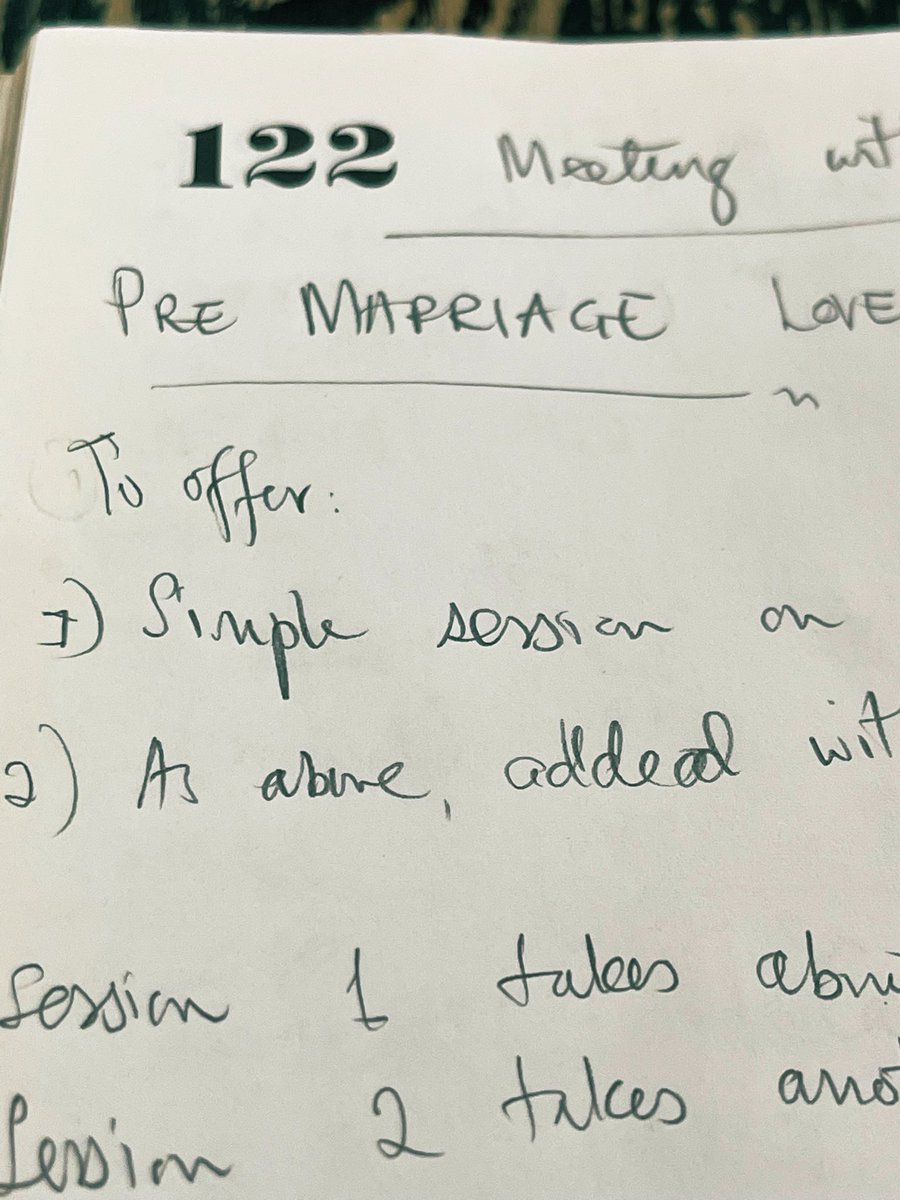 122 Meeting wit
PRE MARRIAGE LOVE
To offer:
1) Simple session on
2) As above, added wit
Session 1 takes abou
Session 2 takes ano